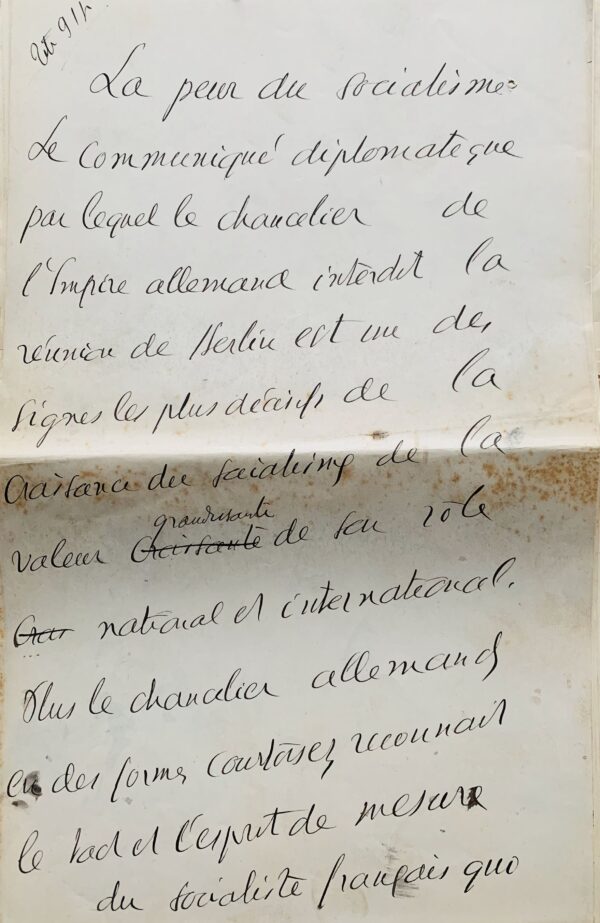 La peur du socialisme
Le communiqué diplomatique
par lequel le chancelier de
l'Empire allemand interdit la
réunion de Berlin est un des
signes les plus décisifs de la
croissance du socialisme de la
grandissante
valeur croissante de son rôle
national et international.
Plus le chancelier allemand
en des formes courtoises reconnait
le tact et l'esprit de mesure
du socialiste français que